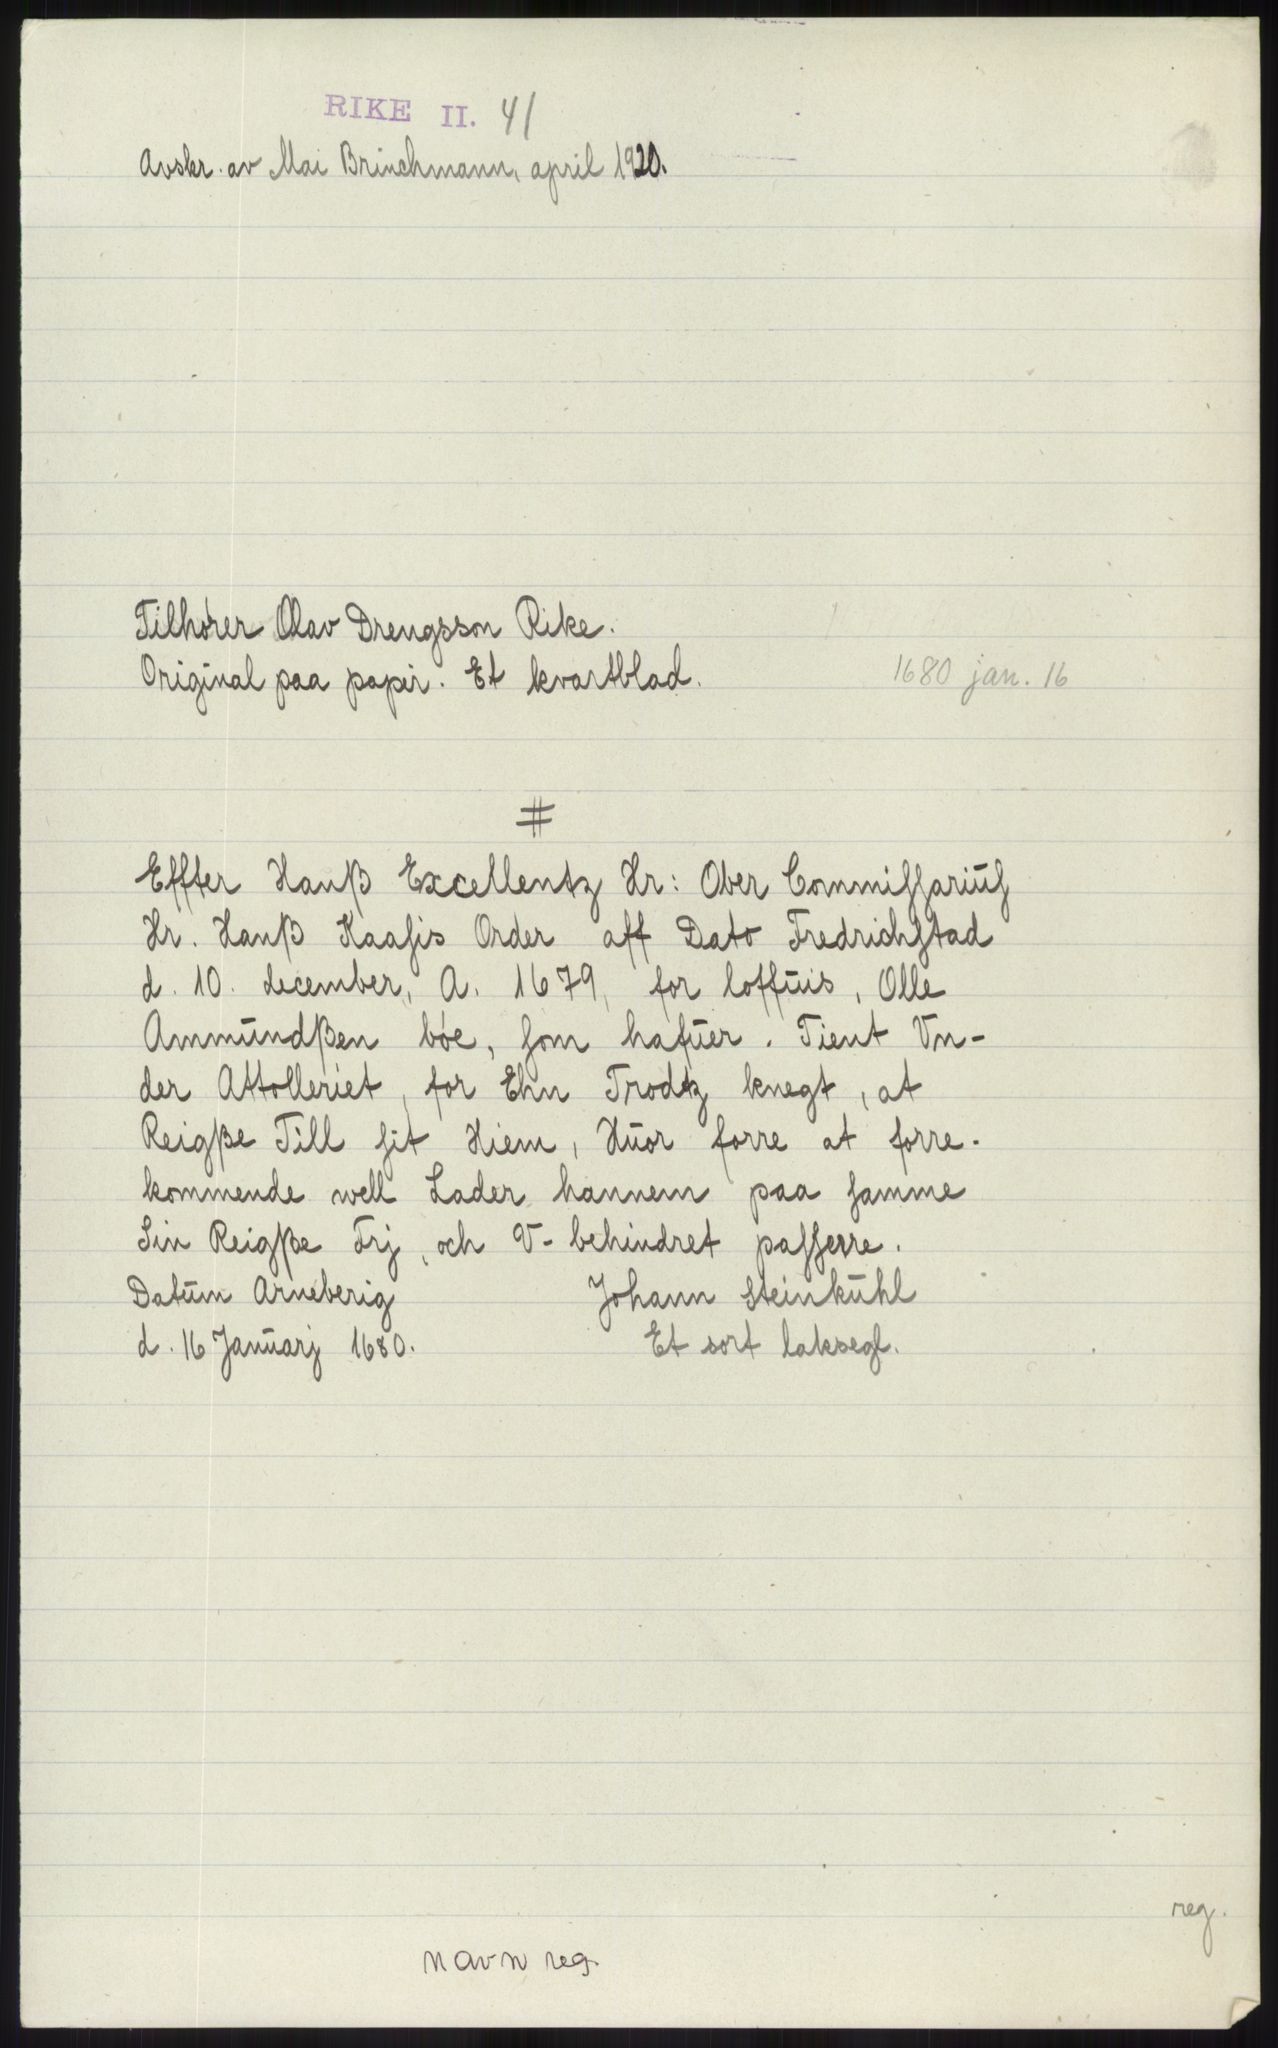 RIKE II. 41
Avskr. av Mai Brinchmann, april 1920.
Tilhører Olav Drengsson Rike.
Original paa papir. Et kvartblad.
1680 jan. 16
#
Effter Hanß Excellentz Hr: Ober Commiſſariuſ
Hr. Hanß Kaaſis Order aff Dato Fredrichſtad
d. 10. december, A. 1679, for loffuis, Olle
Ammundßen bøe, ſom hafuer. Tient Vn-
der Attolleriet, for Ehn Trodtz knegt, at
Reigße Till ſit Hiem, Huor forre at forre-
kommende well Lader hannem paa ſamme
Sin Reigße Frj, och V- behindret paſſerre.
Datum Arneberig
Johann Steinkuhl
d. 16 Januarj 1680.
Et sort laksegl.
reg.
navn reg.